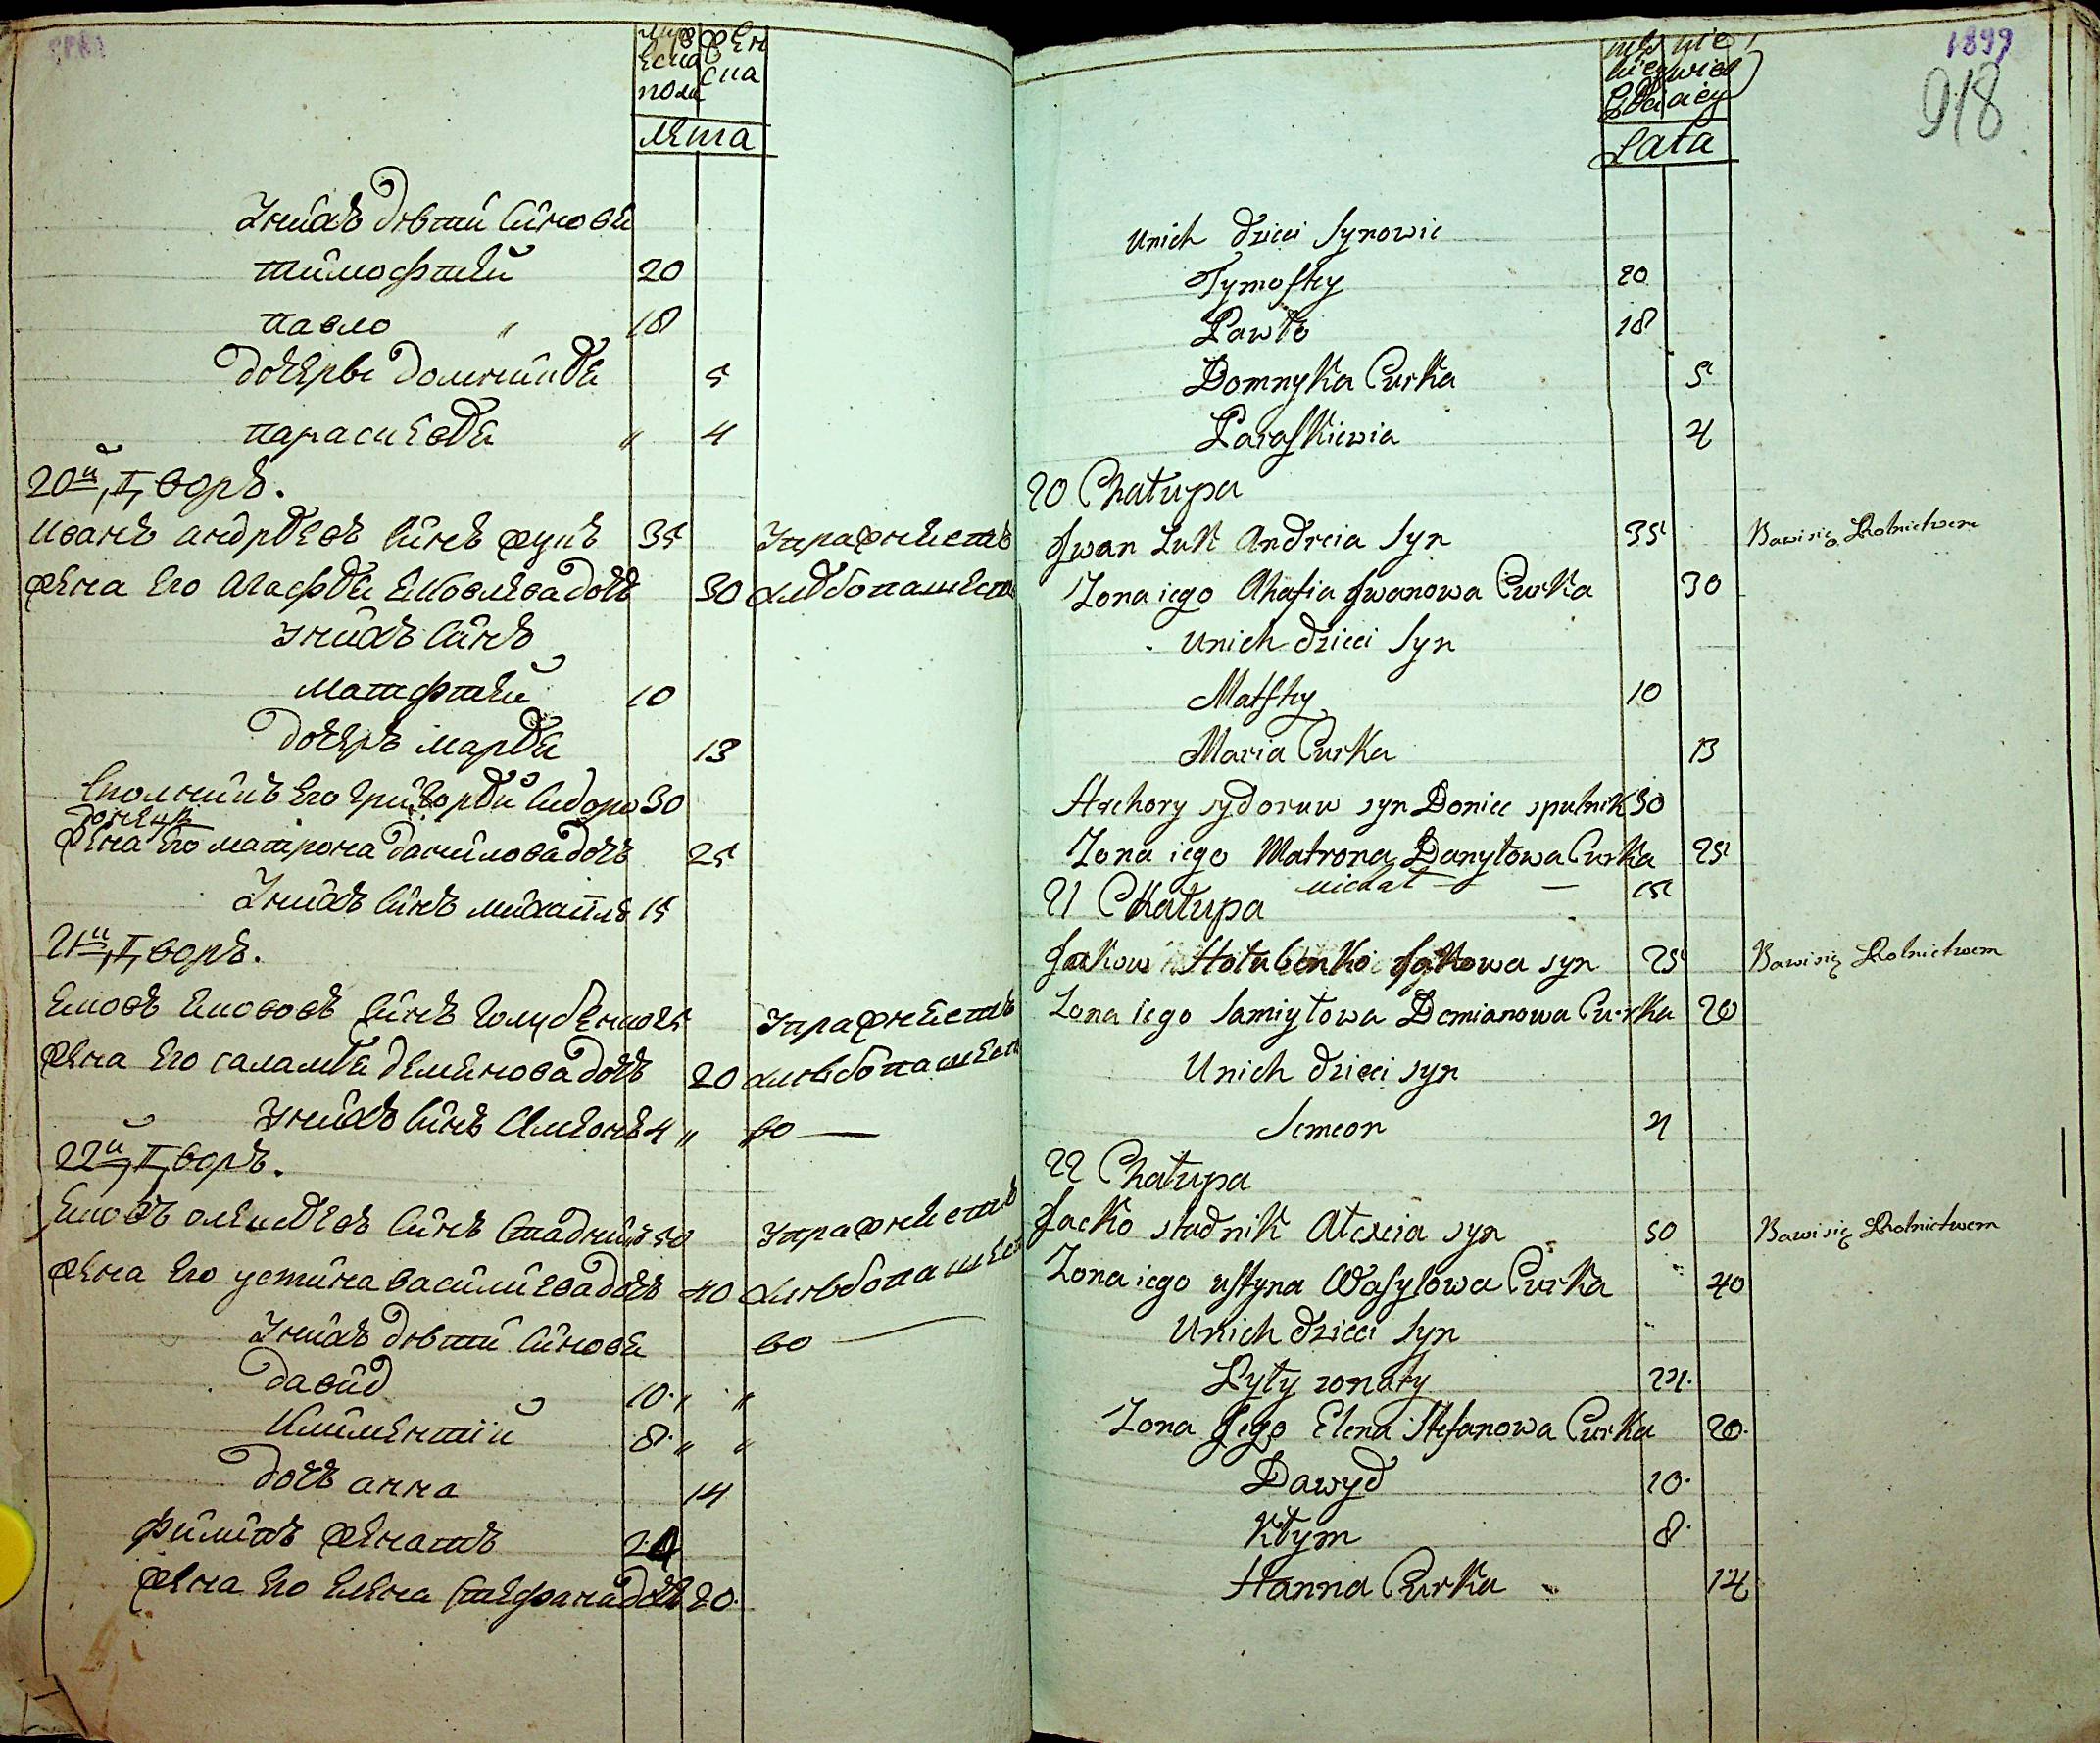 муж
еска
пола
жен
ска
лета
Унихъ дѣти синове
тимофтей 20
павло " 18
дочерѣ домникѣя 5
параскевѣя " 4
20й, двор.
иванъ андрѣевъ синъ жукъ 35 Упражняетъ
жена его агафѣя Яковлева дочъ 30 хлѣбопашест
Унихъ синъ
матфтей 10
дочеръ марѣя 13
Сполникъ его григорѣй сидоро 30
донецъ
жена его матрона данилова дочъ 25
Унихъ синъ михаилъ 15
21й, двор.
Яковъ Якововъ синъ голубенко 25 Упражняетъ
жена его саламѣя демянова дочъ 20 хлѣбопашест
Унихъ синъ Симеонъ 4 " во —
22й, двор.
Яковъ олексѣевъ синъ стадникъ 50 Упражняетъ
жена его устина василиева дочъ 40 хлѣбопашест
Унихъ дѣти синовя во —
давид 10 " "
Климентій 8 " "
дочъ анна 14
филипъ женатъ 24
жена его Елена стефана дочъ 20.
1899
918
Lata
Unich dzieci Synowie
Tymoftey 20
Pawło 18
Domnyka Curka 5
Paraskiewia 4
20 Chałupa
Jwan Żuk Andreia Syn 35 Bawi się Rolnictwem
Zona iego Ahafia Jwanowa Curka 30
Unich dzieci Syn
Matftey 10
Maria Curka 13
Hrehory sydoruw syn Doniec spulnik 30
Zona iego Matrona Danyłowa Curka 25
michał — — 15
21 Chałupa
Jakow Hołubenko Jakowa syn 25 Bawi się Rolnictwem
Zona iego Samiyłowa Demianowa Curka 20
Unich dzieci syn
Semeon 4
22 Chałupa
Jacko stadnik Alexeia syn 50 Bawi się Rolnictwem
Zona iego ustyna Wasylowa Curka 40
Unich dzieci Syn
Pyłyp zonaty 24.
Zona Jego Elena Stefanowa Curka 20.
Dawyd 10.
Kłym 8.
Hanna Curka 14